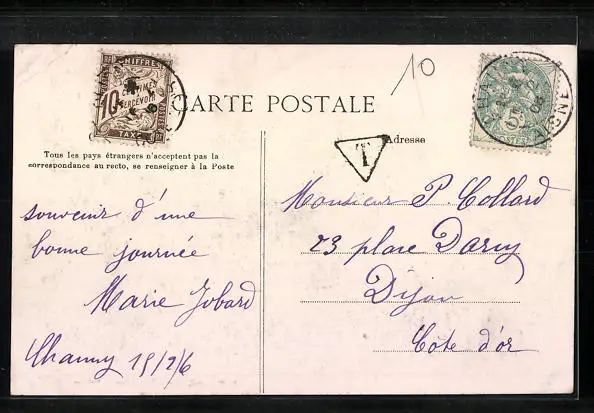 CHIFFRE
10 CENTIMES
A PERCEVOIR
TAXE
10
CARTE POSTALE
T
Adresse
Tous les pays étrangers n'acceptent pas la
correspondance au recto, se renseigner à la Poste
souvenir d'une
bonne journée
Marie Jobard
Chauny 15/2/6
Monsieur P. Collard
23 place Darcy
Dijon
Côte d'or